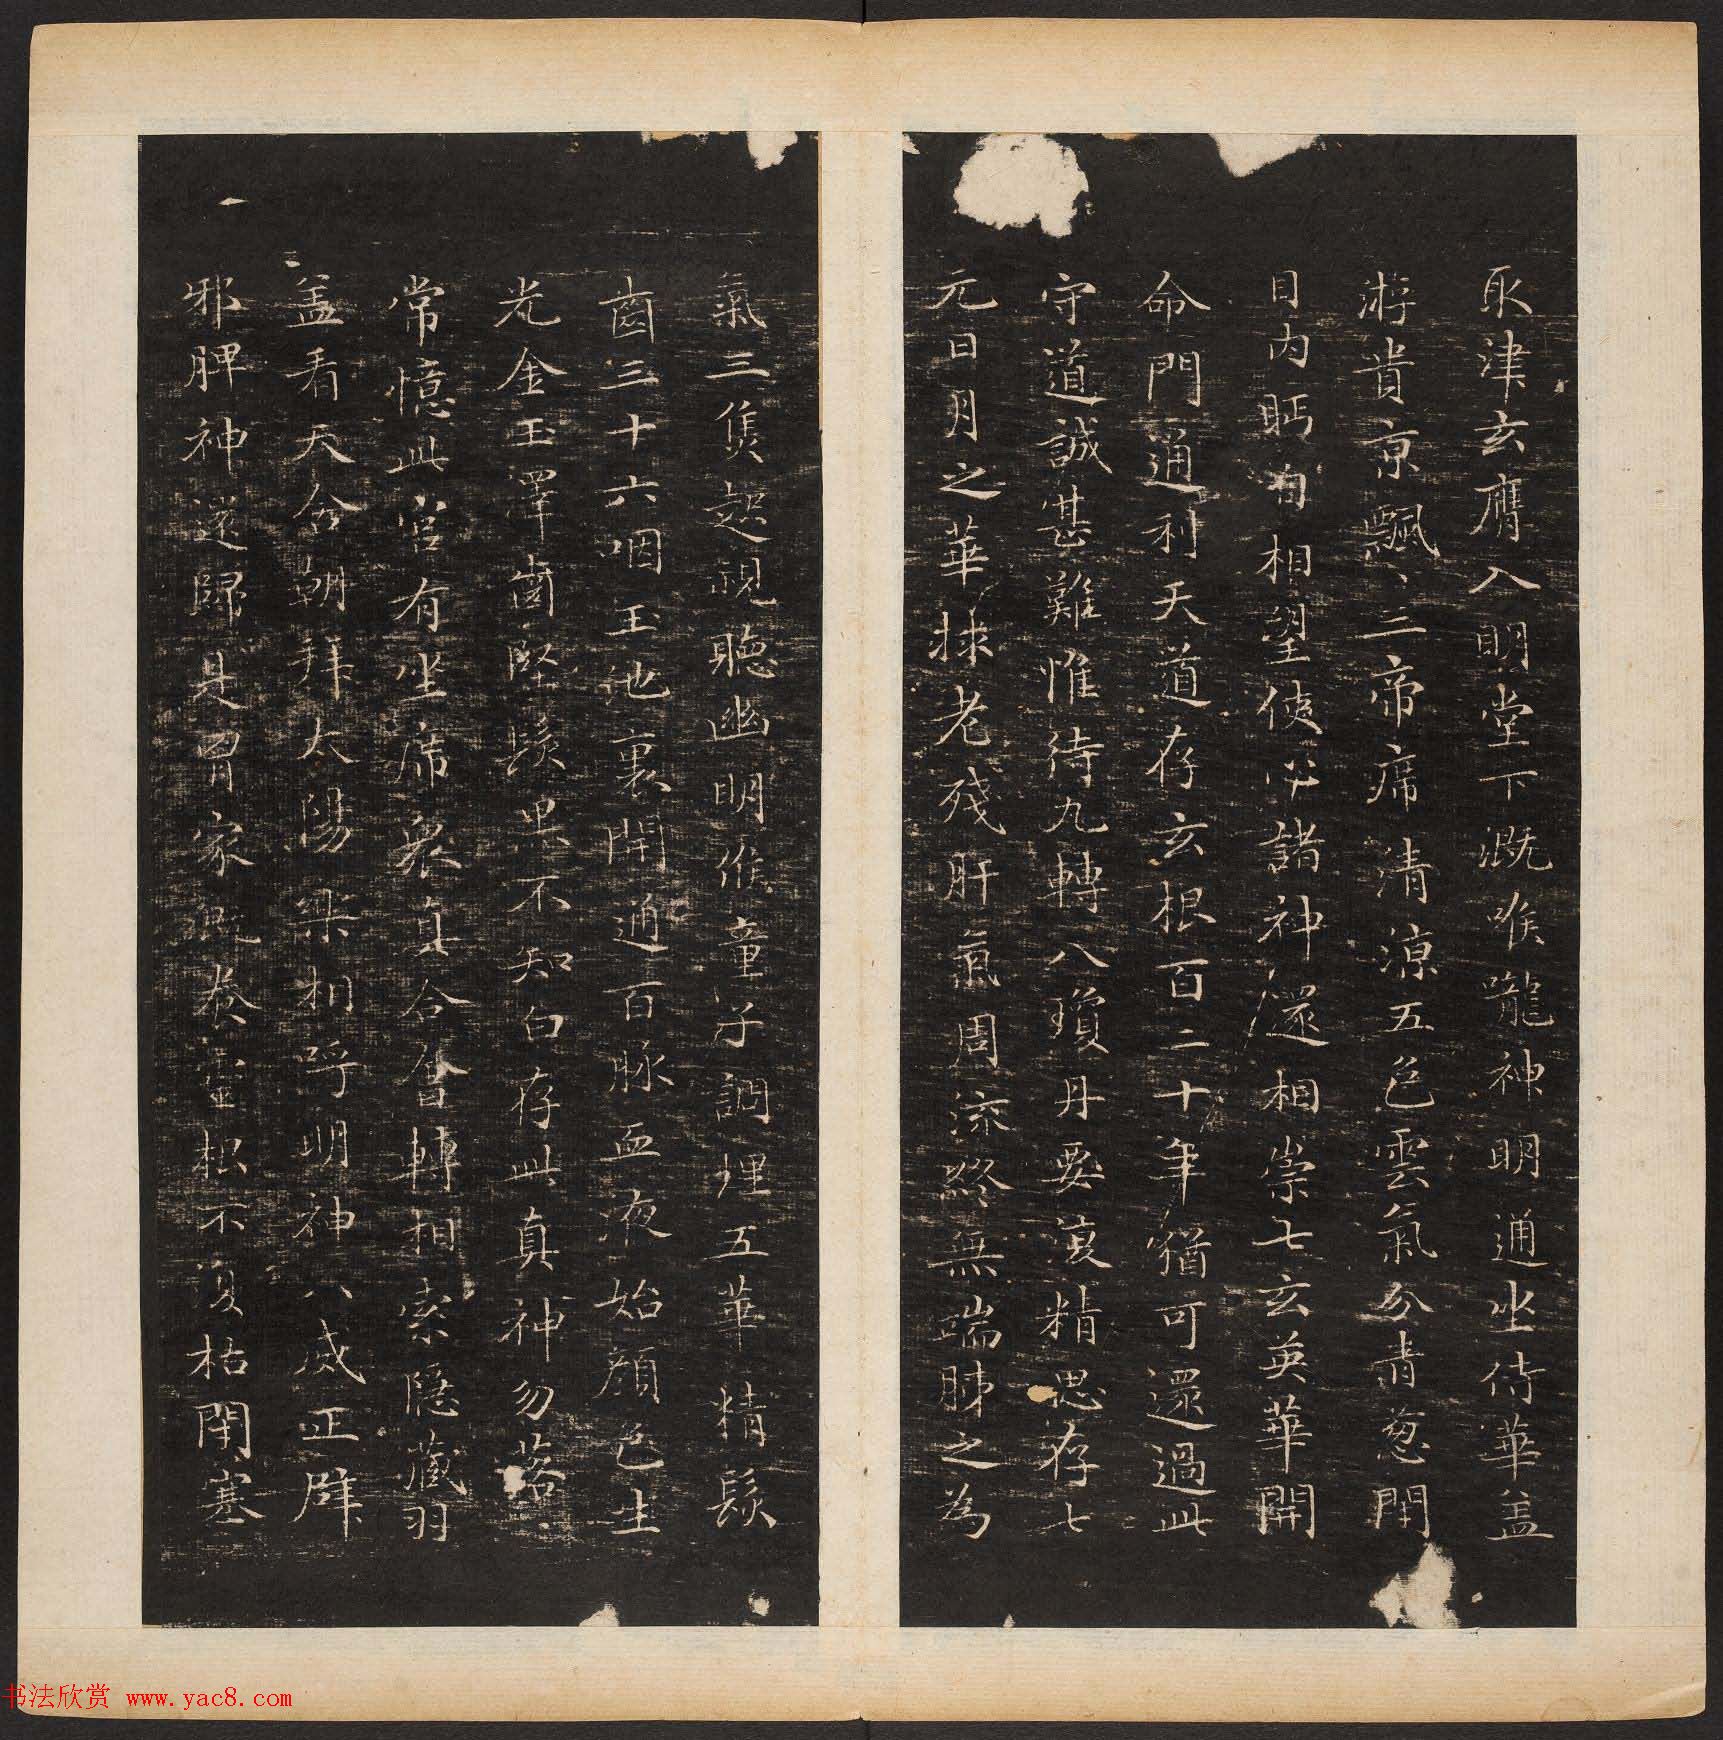 取津玄膺入明堂下溉喉嚨神明通坐侍華盖
游貴京飄、三帝席清涼五色雲氣分青葱閇
目內眄自相望使心諸神還相崇七玄英華開
命門通利天道存玄根百二十年猶可還過此
守道誠甚難惟待九轉八瓊丹要復精思存七
元日月之華救老殘肝氣周流終無端肺之為
氣三焦起視聽幽明候童子調理五華精髮
齒三十六咽玉池裏開通百脉血液始顏色生
光金玉澤齒堅髮黑不知白存此真神勿落
常憶此宮有坐席衆真合會轉相索隱藏羽
盖看天舍朝拜太陽樂相呼明神八威正辟
邪脾神還歸是胃家耽養靈根不復枯閇塞
书法欣赏 www.yac8.com